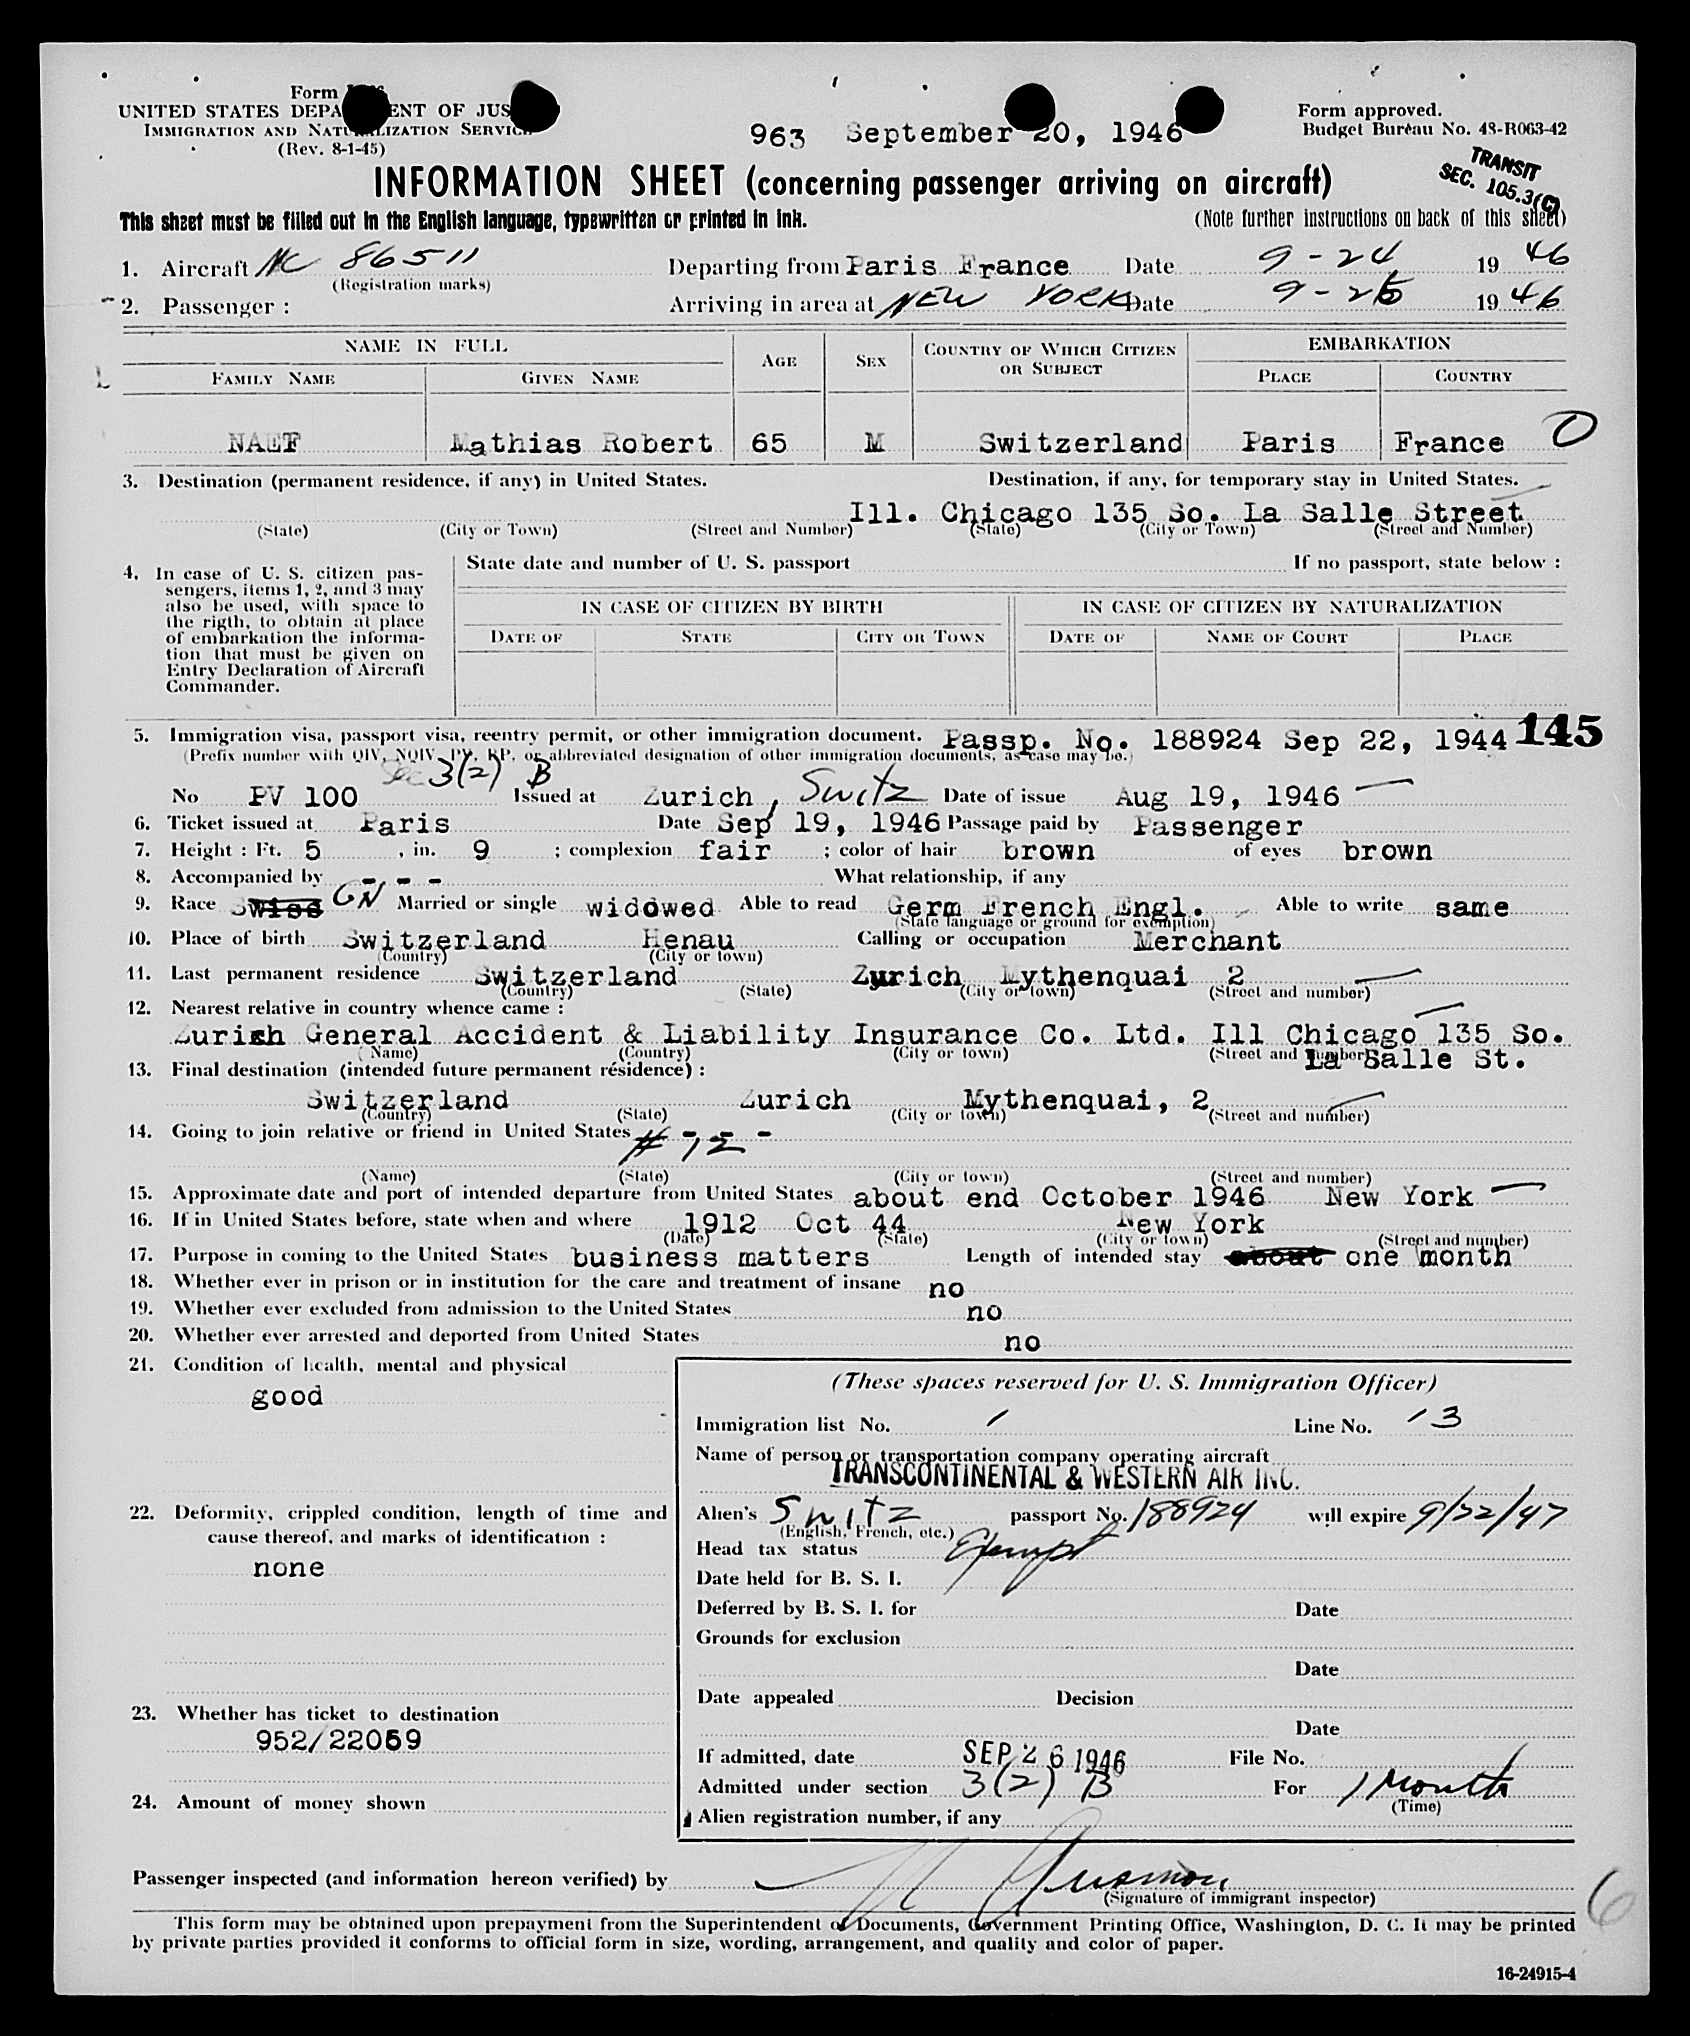 Form
UNITED STATES DEPA ENT OF JUS
IMMIGRATION AND NATURALIZATION SERVICE
(Rev. 8-1-45)
963 September 20, 1946
Form approved.
Budget Bureau No. 43-R063-42
TRANSIT
SEC. 105.3(C)
INFORMATION SHEET (concerning passenger arriving on aircraft)
This sheet must be filled out in the English language, typewritten or printed in ink.
(Note further instructions on back of this sheet)
1. Aircraft NC 86511 Departing from Paris France Date 9-24 1946
(Registration marks)
2. Passenger : Arriving in area at NEW YORK Date 9-26 1946
NAME IN FULL AGE SEX COUNTRY OF WHICH CITIZEN OR SUBJECT EMBARKATION
FAMILY NAME GIVEN NAME PLACE COUNTRY
NAEF Mathias Robert 65 M Switzerland Paris France O
3. Destination (permanent residence, if any) in United States. Destination, if any, for temporary stay in United States.
Ill. Chicago 135 So. La Salle Street
(State) (City or Town) (Street and Number) (State) (City or Town) (Street and Number)
4. In case of U. S. citizen pas-
sengers, items 1, 2, and 3 may
also be used, with space to
the rigth, to obtain at place
of embarkation the informa-
tion that must be given on
Entry Declaration of Aircraft
Commander.
State date and number of U. S. passport If no passport, state below :
IN CASE OF CITIZEN BY BIRTH IN CASE OF CITIZEN BY NATURALIZATION
DATE OF STATE CITY OR TOWN DATE OF NAME OF COURT PLACE
5. Immigration visa, passport visa, reentry permit, or other immigration document. Passp. No. 188924 Sep 22, 1944 145
(Prefix number with QIV, NQIV, PV, RP, or abbreviated designation of other immigration documents, as case may be.)
Sec 3(2) B
No PV 100 Issued at Zurich, Switz Date of issue Aug 19, 1946
6. Ticket issued at Paris Date Sep 19, 1946 Passage paid by Passenger
7. Height : Ft. 5 , in. 9 ; complexion fair ; color of hair brown of eyes brown
8. Accompanied by - - - What relationship, if any
9. Race Swiss GN Married or single widowed Able to read Germ French Engl. Able to write same
(State language or ground for exemption)
10. Place of birth Switzerland Henau Calling or occupation Merchant
(Country) (City or town)
11. Last permanent residence Switzerland Zurich Mythenquai 2
(Country) (State) (City or town) (Street and number)
12. Nearest relative in country whence came :
Zurich General Accident & Liability Insurance Co. Ltd. Ill Chicago 135 So.
La Salle St.
(Name) (Country) (City or town) (Street and number)
13. Final destination (intended future permanent résidence) :
Switzerland Zurich Mythenquai, 2
(Country) (State) (City or town) (Street and number)
14. Going to join relative or friend in United States - - -
# 12
(Name) (State) (City or town) (Street and number)
15. Approximate date and port of intended departure from United States about end October 1946 New York
16. If in United States before, state when and where 1912 Oct 44 New York
(Date) (State) (City or town) (Street and number)
17. Purpose in coming to the United States business matters Length of intended stay about one month
18. Whether ever in prison or in institution for the care and treatment of insane no
19. Whether ever excluded from admission to the United States no
20. Whether ever arrested and deported from United States no
21. Condition of health, mental and physical
good
22. Deformity, crippled condition, length of time and
cause thereof, and marks of identification :
none
23. Whether has ticket to destination
952/22059
24. Amount of money shown
(These spaces reserved for U. S. Immigration Officer)
Immigration list No. 1 Line No. 13
Name of person or transportation company operating aircraft
TRANSCONTINENTAL & WESTERN AIR INC.
Alien's Switz passport No. 188924 will expire 9/22/47
(English, French, etc.)
Head tax status Exempt
Date held for B. S. I.
Deferred by B. S. I. for Date
Grounds for exclusion
Date
Date appealed Decision
Date
If admitted, date SEP 26 1946 File No.
Admitted under section 3(2) B For 1 Month
(Time)
Alien registration number, if any
Passenger inspected (and information hereon verified) by
(Signature of immigrant inspector)
6
This form may be obtained upon prepayment from the Superintendent of Documents, Government Printing Office, Washington, D. C. It may be printed
by private parties provided it conforms to official form in size, wording, arrangement, and quality and color of paper.
16-24915-4